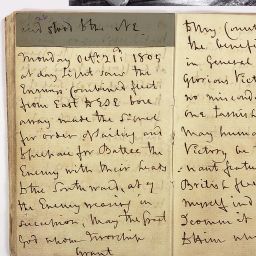 and stood to the NE
Monday Octr: 21st: 1805
at day Light saw the
Enemys Combined fleet
from East to ESE bore
away made the Signal
for order of Sailing and
to prepare for Battle the
Enemy with their heads
to the Southward, at 7
the Enemy wearing in
succession, May the Great
God whom I worship
Grant
to my Count
the benefi
in General
Glorious Vict
no miscond
one tarnish
May huma
Victory be
nant featu
British flee
myself ind
I commit
to Him wh